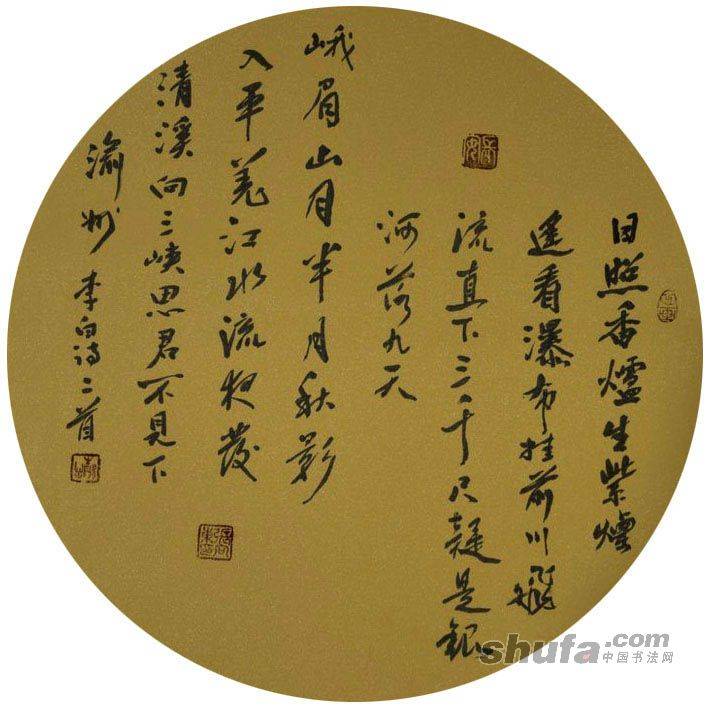 日照香爐生紫煙
遥看瀑布挂前川飛
流直下三千尺疑是銀
河落九天
峨眉山月半月秋影
入平羌江水流夜發
清溪向三峽思君不見下
渝州 李白詩二首
shufa.com
中国书法网